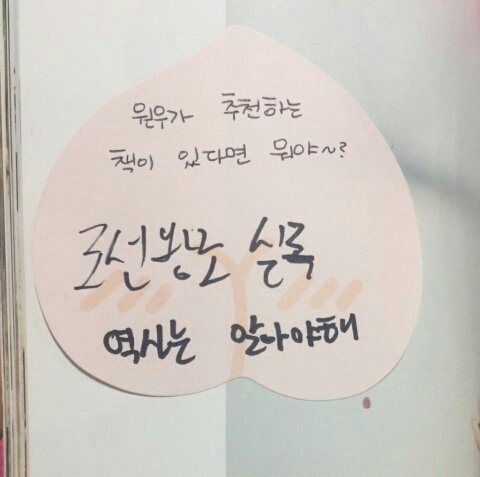 원우가 추천하는
책이 있다면 뭐야~?
조선왕조 실록
역사는 알아야해